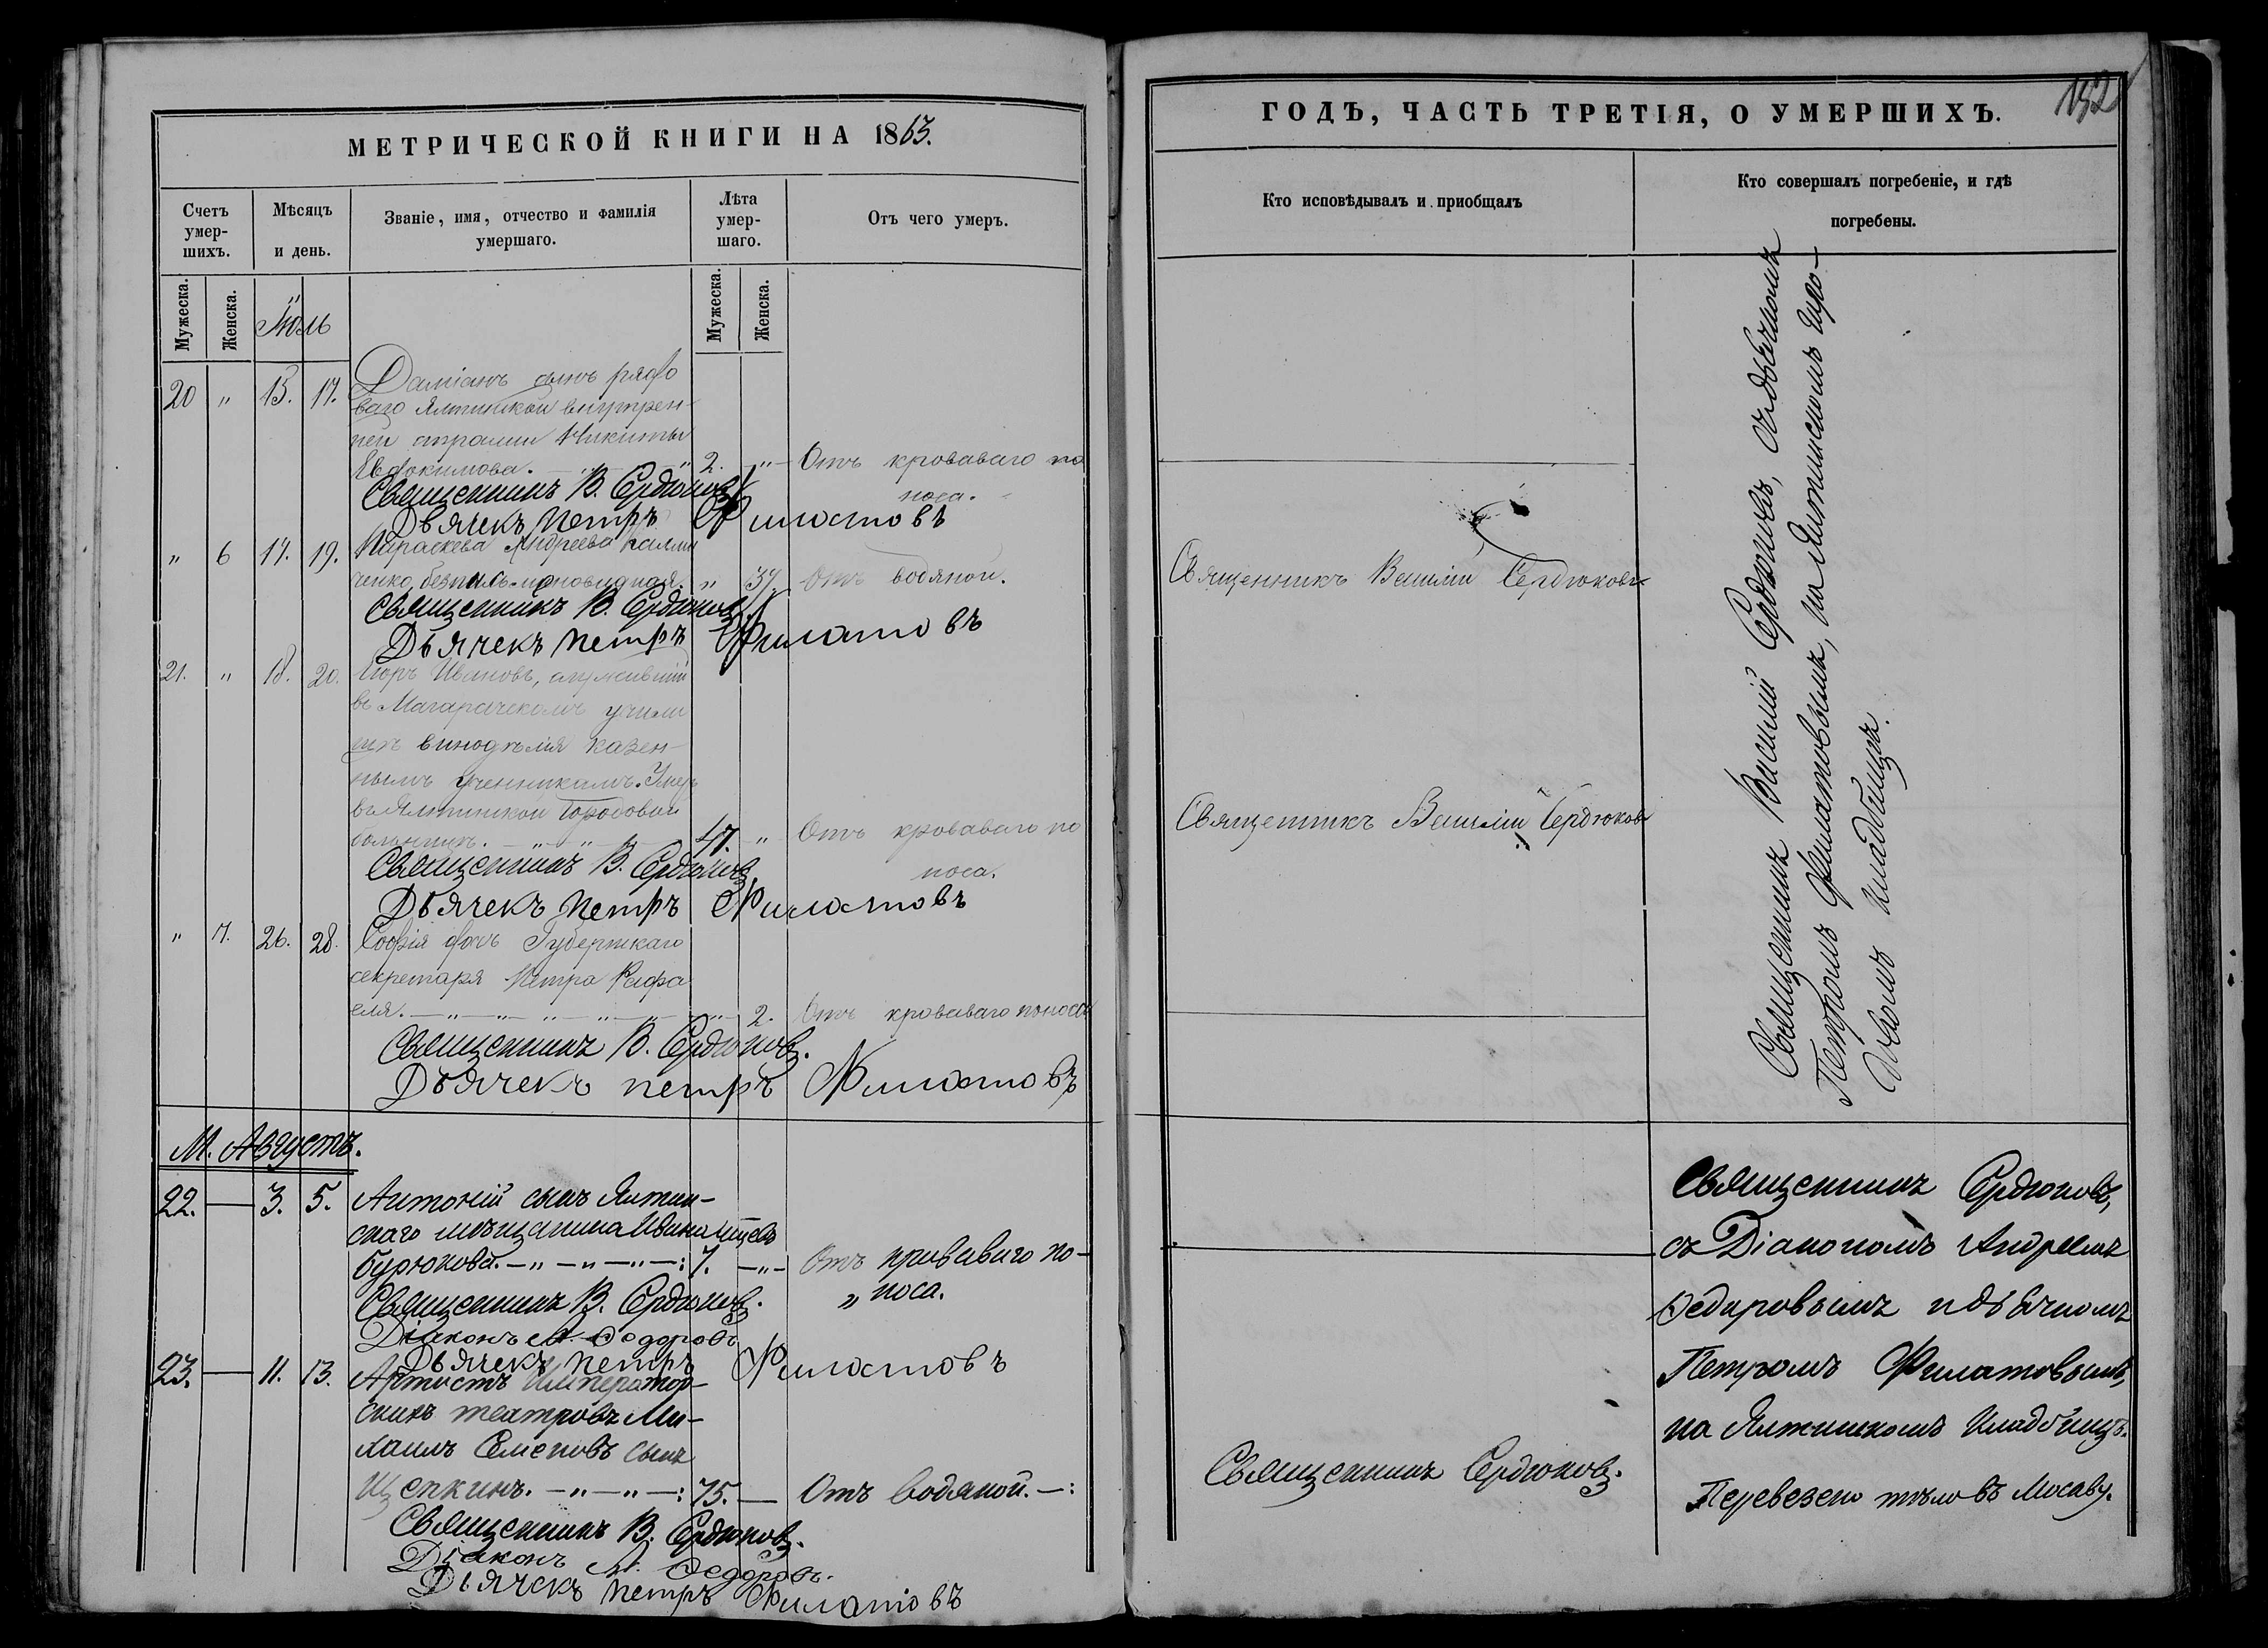 МЕТРИЧЕСКОЙ КНИГИ НА 1863.
Счетъ умер-шихъ.
Мѣсяцъ и день.
Званіе, имя, отчество и фамилія умершаго.
Лѣта умер-шаго.
Отъ чего умеръ.
Мужеска.
Женска.
Іюль
Мужеска.
Женска.
20 " 15. 17. Даміанъ сынъ рядо
ваго Ялтинской внутрен-
ней стражи Никиты
Евдокимова. 2. " Отъ кроваваго по
носа.
Священникъ В. Сердюковъ
Дьячекъ Петръ Филатовъ
" 6 17. 19. Параскева Андреева
37 Отъ водяной.
Священникъ В. Сердюковъ
Дьячекъ Петръ Филатовъ
21. " 18. 20. Егоръ Ивановъ, служившій
въ Магарачскомъ учили
щѣ винодѣлія казен-
нымъ ученикамъ. Умеръ
въ Ялтинской Городовой
больницѣ. 47. " Отъ кроваваго по
носа.
Священникъ В. Сердюковъ
Дьячекъ Петръ Филатовъ
" 7. 26. 28. Софія дочь Губернскаго
секретаря Петра Рафа
еля. 2. Отъ кроваваго поноса
Священникъ В. Сердюковъ.
Дьячекъ Петръ Филатовъ
М. Августъ.
22. — 3. 5. Антоній сынъ Ялтин-
скаго мѣщанина Ивана
Бурюкова. 7. Отъ кроваваго по-
носа.
Священникъ В. Сердюковъ.
Діаконъ А. Ѳедоровъ
Дьячекъ Петръ Филатовъ
23. — 11. 13. Артистъ Император-
скихъ театровъ Ми-
хаилъ Семеновъ сынъ
Щепкинъ. 75. — Отъ водяной.
Священникъ В. Сердюковъ.
Діаконъ А. Ѳедоровъ.
Дьячекъ Петръ Филатовъ
ГОДЪ, ЧАСТЬ ТРЕТІЯ, О УМЕРШИХЪ.
152
Кто исповѣдывалъ и приобщалъ
Кто совершалъ погребеніе, и гдѣ
погребены.
Священникъ Василій Сердюковъ
Священникъ Василій Сердюковъ
Священникъ Василій Сердюковъ, съ дьячкомъ
Петромъ Филатовымъ, на Ялтинскомъ Горо-
довомъ Кладбищѣ.
Священникъ Сердюковъ,
съ Діакономъ Андреемъ
Ѳедоровымъ и дьячкомъ
Петромъ Филатовымъ,
на Ялтинскомъ Кладбищѣ.
Священникъ Сердюковъ.
Перевезено тѣло въ Москву.